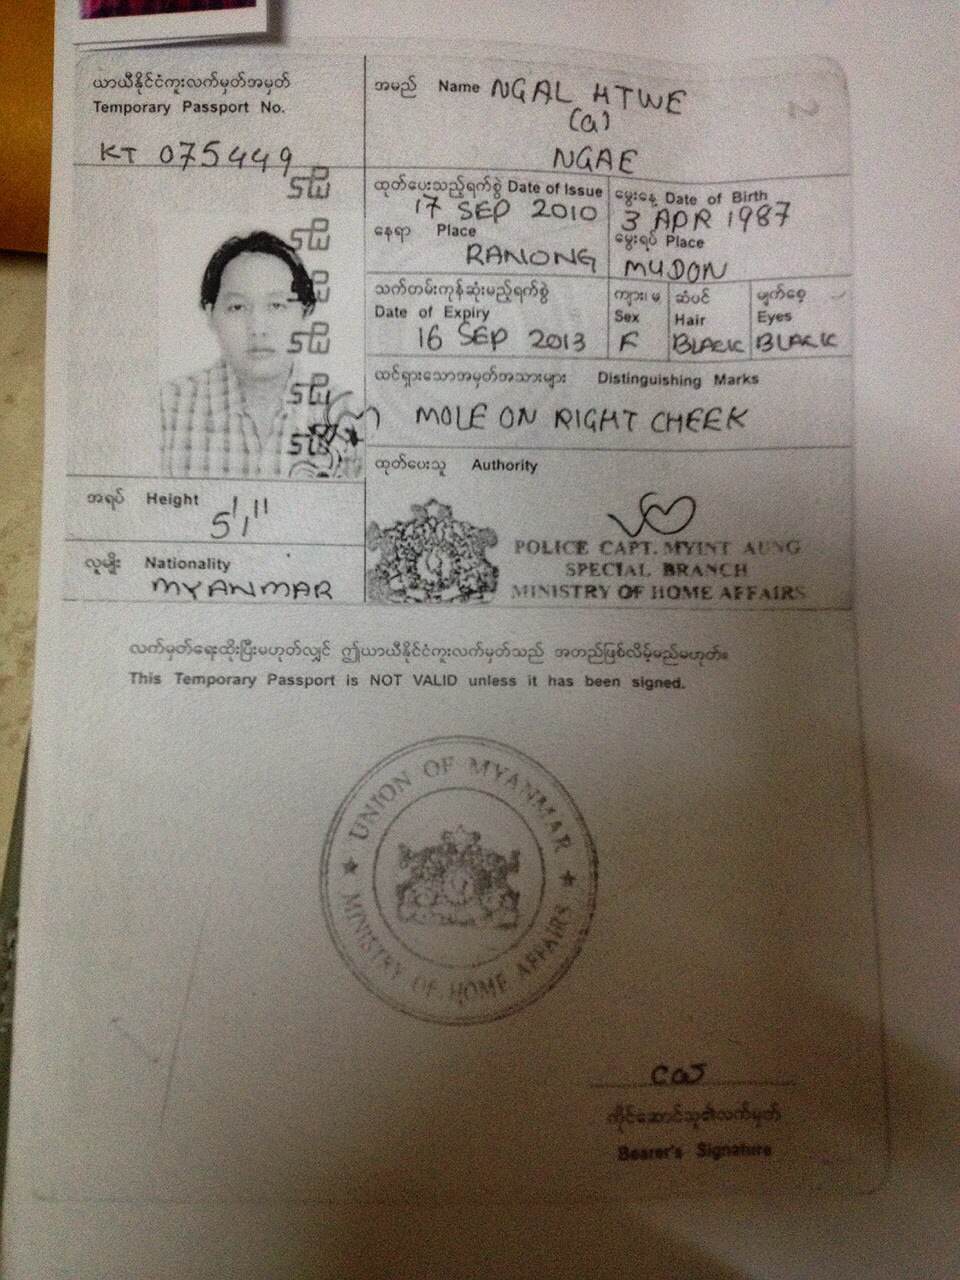 ယာယီနိုင်ငံကူးလက်မှတ်အမှတ်
Temporary Passport No.
KT 075449
အမည် Name NGAL HTWE
(a)
NGAE
ထုတ်ပေးသည့်ရက်စွဲ Date of Issue
17 SEP 2010
နေရာ Place
RANONG
မွေးနေ့ Date of Birth
3 APR 1987
မွေးရပ် Place
MUDON
သက်တမ်းကုန်ဆုံးမည့်ရက်စွဲ
Date of Expiry
16 SEP 2013
ကျား၊ မ
Sex
F
ဆံပင်
Hair
BLACK
မျက်စေ့
Eyes
BLACK
ထင်ရှားသောအမှတ်အသားများ Distinguishing Marks
MOLE ON RIGHT CHEEK
အရပ် Height
5' 1"
လူမျိုး Nationality
MYANMAR
ထုတ်ပေးသူ Authority
POLICE CAPT. MYINT AUNG
SPECIAL BRANCH
MINISTRY OF HOME AFFAIRS
လက်မှတ်ရေးထိုးပြီးမဟုတ်လျှင် ဤယာယီနိုင်ငံကူးလက်မှတ်သည် အတည်ဖြစ်လိမ့်မည်မဟုတ်။
This Temporary Passport is NOT VALID unless it has been signed.
UNION OF MYANMAR
MINISTRY OF HOME AFFAIRS
ကိုင်ဆောင်သူ၏လက်မှတ်
Bearer's Signature